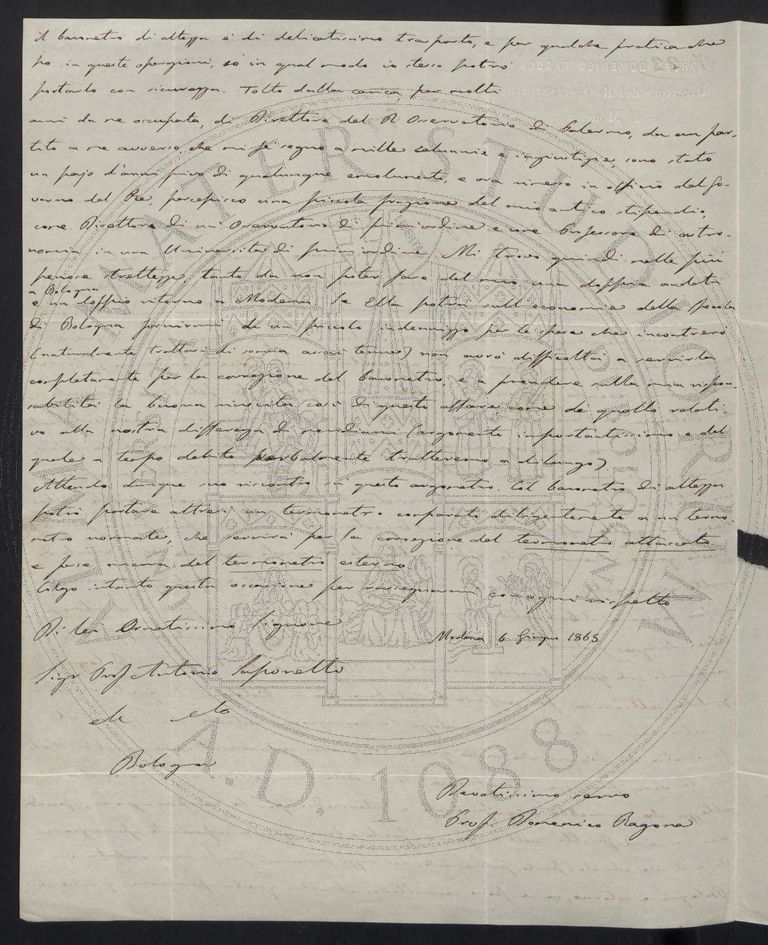 il barometro di altezza è di delicatissimo trasporto, e per qualche pratica che
ho in queste operazioni, so in qual modo io stesso potrò
portarlo con sicurezza. Tolto dalla carica, per molti
anni da me occupata, di Direttore del R. Osservatorio di Palermo, da un par-
tito a me avverso, che mi fè segno a mille calunnie e ingiustizie, sono stato
un pajo d'anni privo di qualunque emolumento, e ora rimesso in officio dal Go-
verno del Re, percepisco una piccola frazione del mio antico stipendio,
come Direttore di un Osservatorio di prim'ordine e come Professore di astro-
nomia in una Università di prim'ordine. Mi trovo quindi nelle più
penose strettezze, tanto da non poter fare del mio una doppia andata
a Bologna
e un doppio ritorno a Modena. Se Ella potrà sull'economie della Specola
di Bologna fornirmi di un piccolo indennizzo per le spese che incontrerò
(naturalmente trattasi di somma assai tenue) non avrò difficoltà a servirla
completamente per la correzione del barometro, e a prendere sulla mia respon-
sabilità la buona riuscita così di questo affare come di quello relati-
vo alla nostra differenza di meridiani (argomento importantissimo e del
quale a tempo debito verbalmente tratteremo a dilungo)
Attendo dunque suo riscontro in questo argomento. Col barometro di altezza
potrò portare altresì un termometro comparato diligentemente a un termo-
metro normale, che servirà per la correzione del termometro attaccato
e fors'anco del termometro esterno
Colgo intanto questa occasione per rassegnarmi con ogni rispetto
Di Lei Ornatissimo Signore
Modena 6 Giugno 1865
Sigr Prof Antonio Saporetti
Bologna
Devotissimo servo
Prof. Domenico Ragona
ALMA MATER STUDIORUM
A.D. 1088